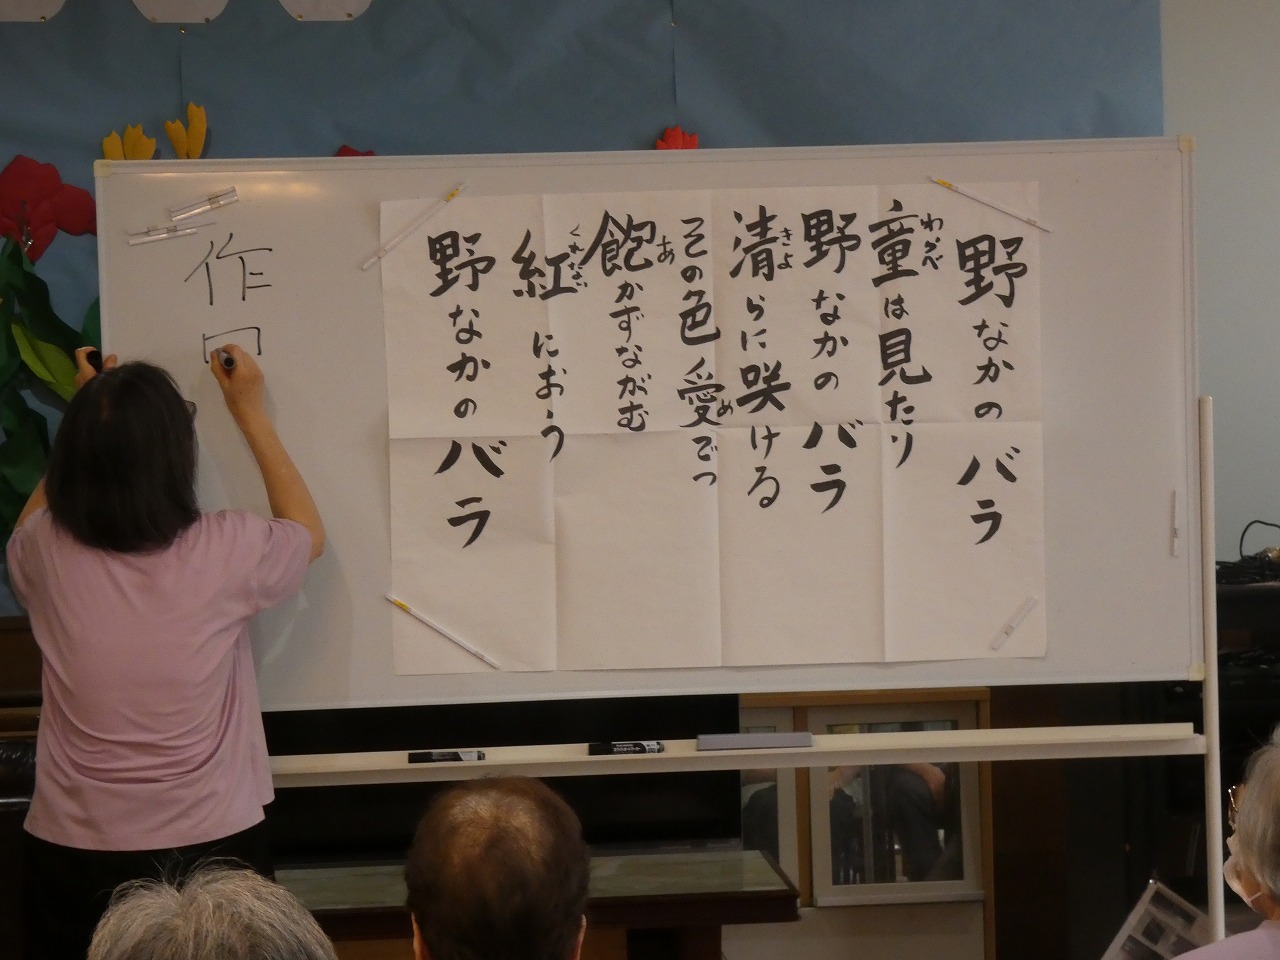 野なかのバラ
童は見たり
わらべ
野なかのバラ
清らに咲ける
きよ
その色愛でつ
め
飽かずながむ
あ
紅におう
くれない
野なかのバラ
作